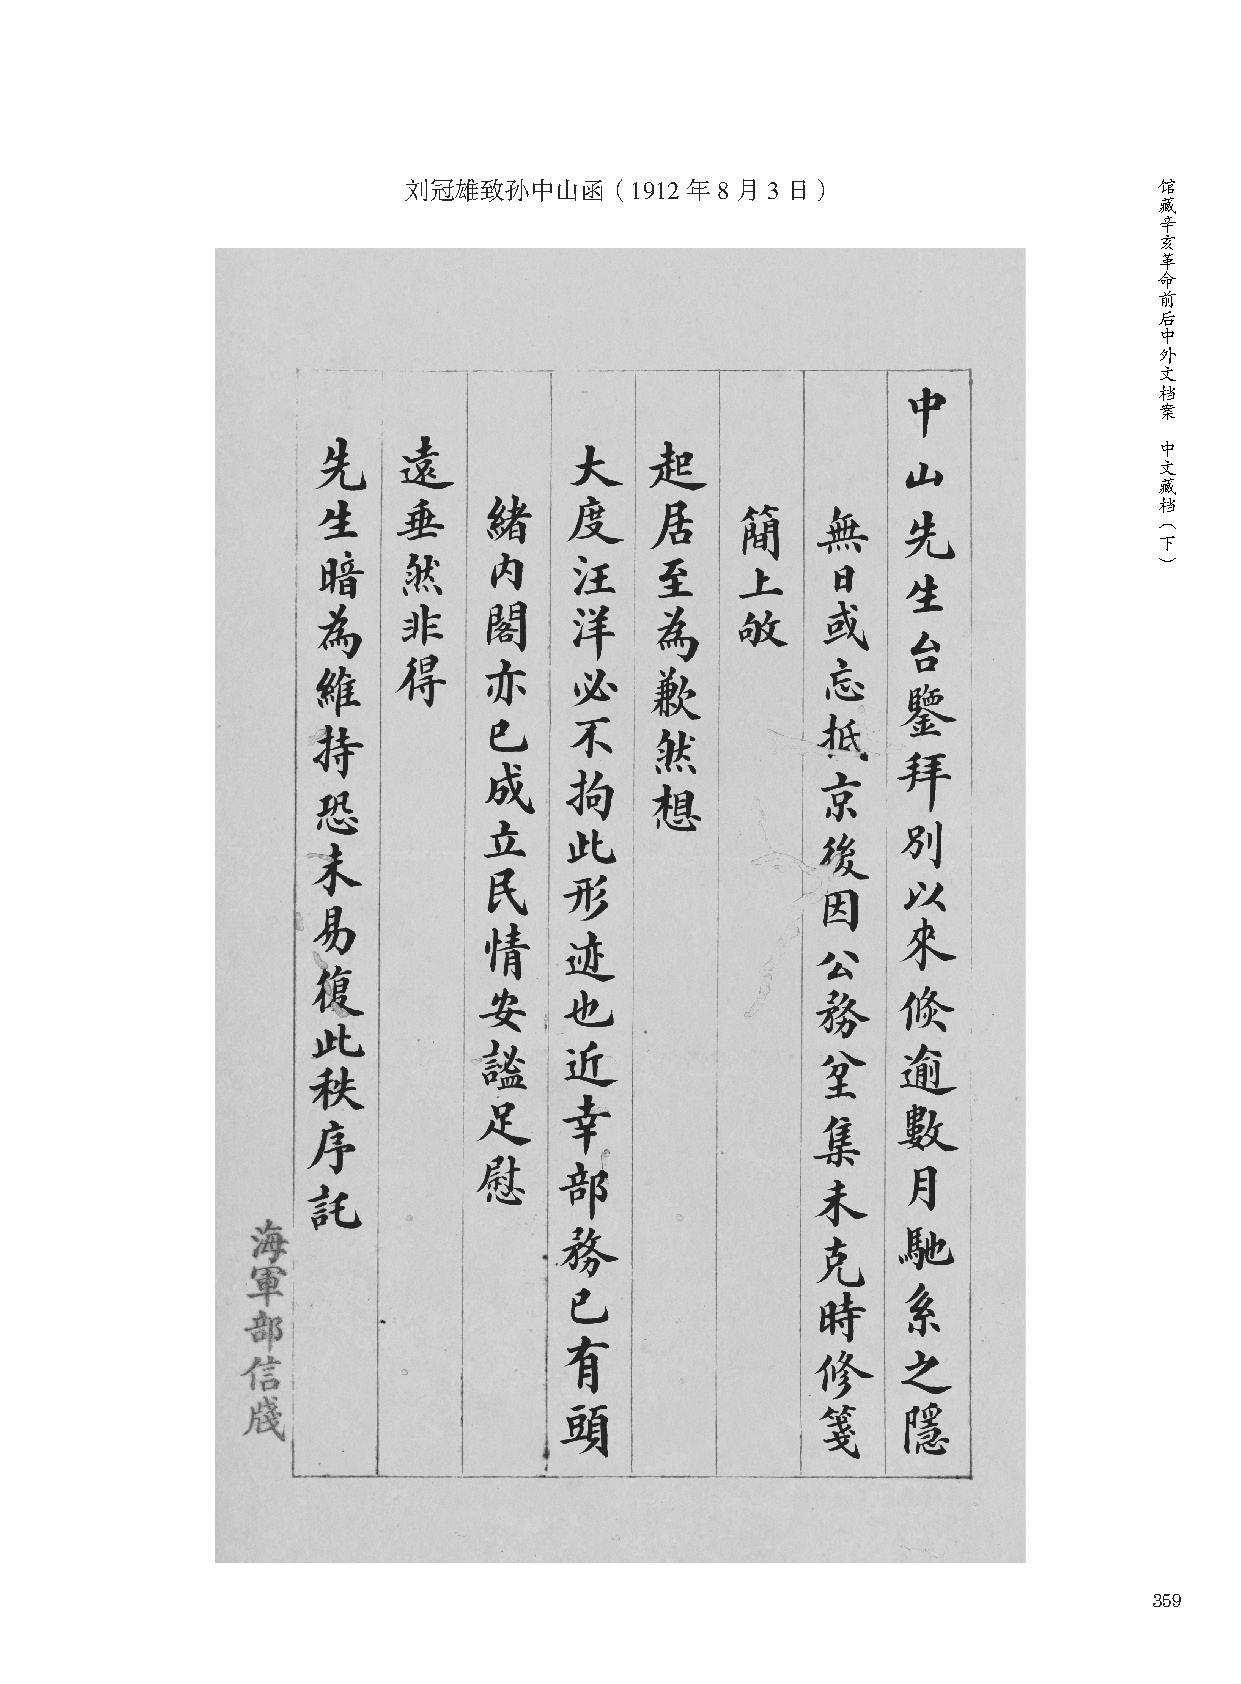 刘冠雄致孙中山函（1912年8月3日）
馆藏辛亥革命前后中外文档案 中文藏档（下）
中山先生台鑒拜別以來倏逾數月馳系之隱
無日或忘抵京後因公務坌集未克時修箋
簡上敂
起居至為歉然想
大度汪洋必不拘此形迹也近幸部務已有頭
緒内閣亦已成立民情安謐足慰
遠垂然非得
先生暗為維持恐未易復此秩序託
海軍部信牋
359